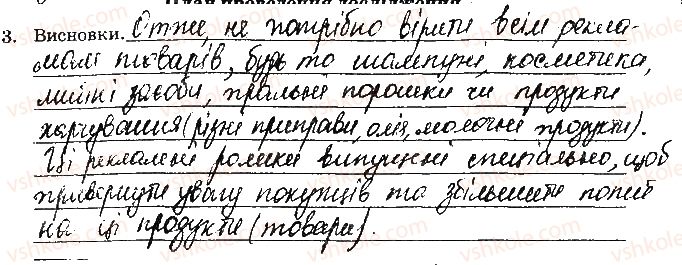 План проведення дослідження
3. Висновки. Отже, не потрібно вірити всім рекла-
мам товарів, будь то шампуні, косметика,
миїні засоби, пральні порошки чи продукти
харчування (різні приправи, олія, молочні продукти).
Ці рекламні ролики випущенні спеціально, щоб
привернути увагу покупців та збільшити попит
на ці продукти (товари).